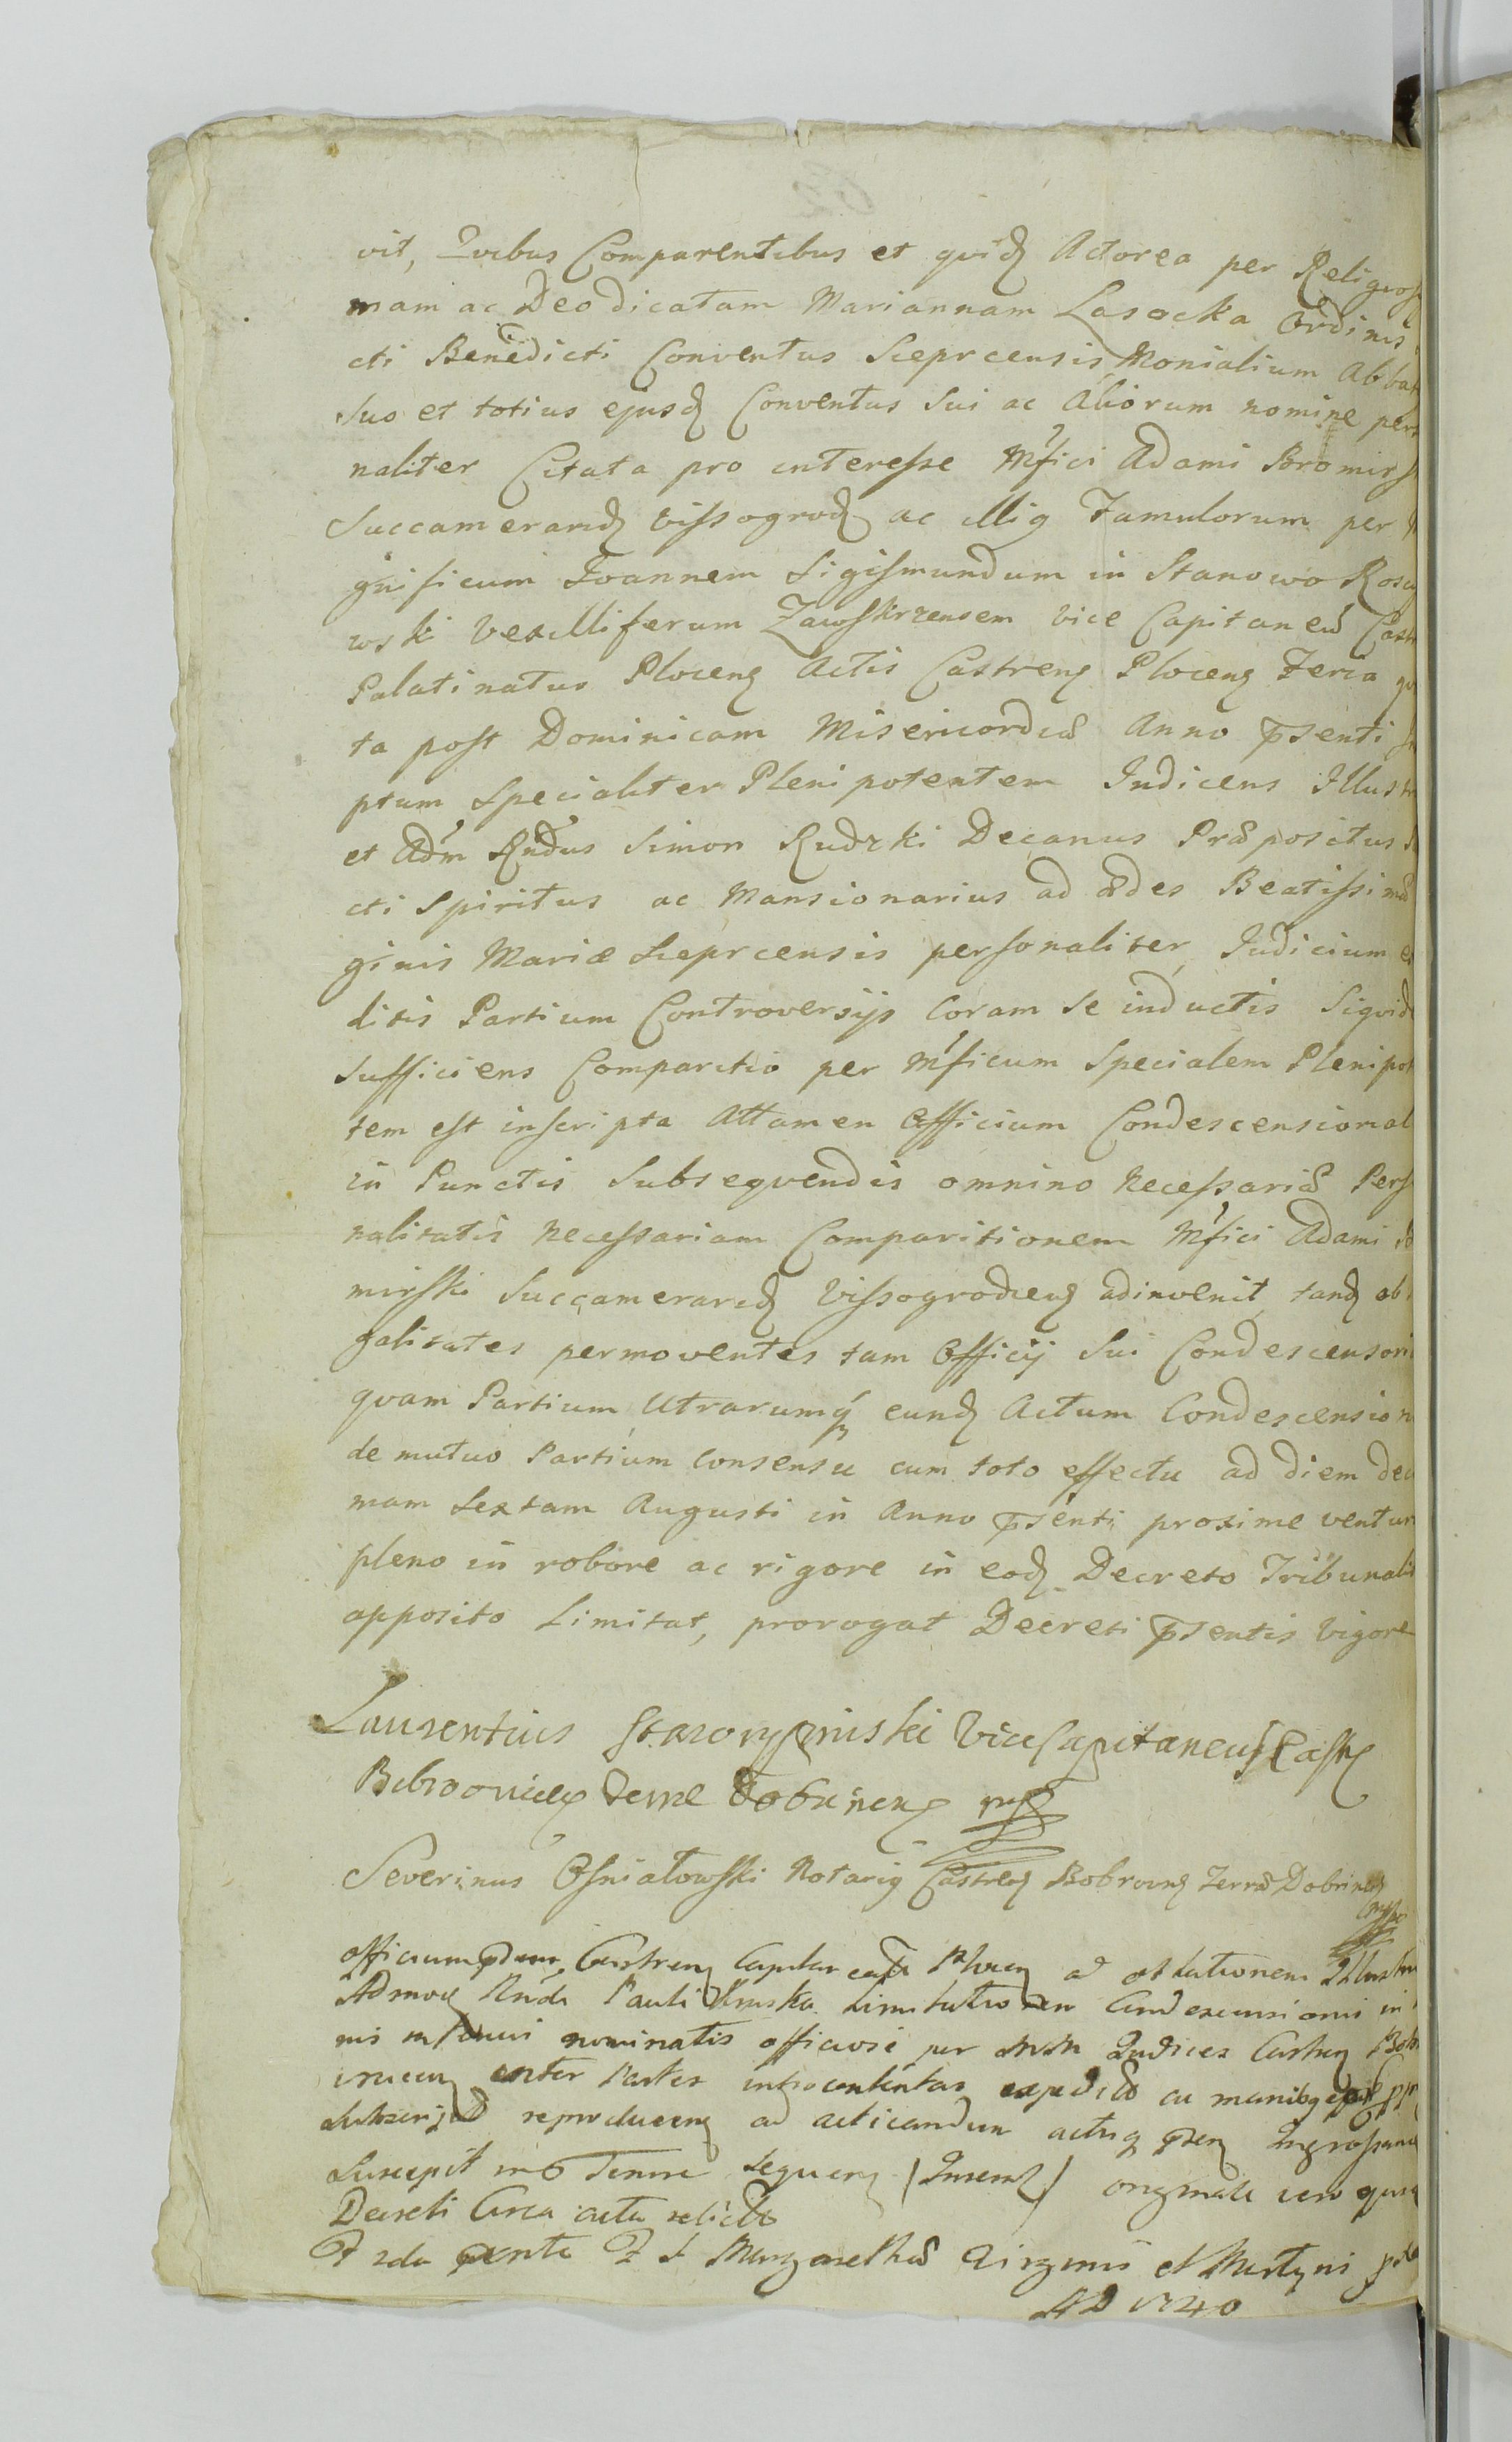 vit, Quibus Comparentibus et quid Actorea per Religiosi
mam ac Deo dicatam Mariannam Lasocka Ordinis
cti Benedicti Conventus Sieprcensis Monialium Abbat
Suo et totius ejusd Conventus Sui ac Aliorum nomine perso
naliter Citata pro interesse Mfici Adami Bromirs
Succamerarid Vissogrod ac illig Famulorum per
gnificum Joannem Sigismundum in Stanowo Rosci
wski Vexilliferum Zawskrzensem Vice Capitaneu Castr
Palatinatus Ploceng Actis Castreng Ploceng Feria qu
ta post Dominicam Misericordia Anno psenti
ptum Specialiter Plenipotentem Indicens Illustr
et Adm Rndus Simon Rudzki Decanus Præpositus
cti Spiritus ac Mansionarius ad ædes Beatissimæ
ginis Mariæ Sieprcensis personaliter, Judicium e
ditis Partium Controversijs Coram Se inductis Siquide
Sufficiens Comparitio per Mficum Specialem Plenipot
tem est inscripta Attamen Officium Condescensional
in Punctis Subsequendis omnino Necessariæ Perso
nalitatis necessariam Comparitionem Mfici Adami
mirski Succamerarid Vissogrodieng adinvenit, tand ob
galitates permoventes tam Officij Sui Condescensori
quam Partium Utrarumq eund Actum Condescension
de mutuo Partium Consensu cum toto effectu ad diem deci
mam Sextam Augusti in Anno psenti proxime ventur
pleno in robore ac rigore in eod Decreto Tribunalis
apposito Limitat, prorogat Decreti psentis Vigore
Laurentius ViceCapitaneus Castr
Terræ Dobrineng mp
Severinus Osniałowski Notarig Castreng Bobrovng Terræ Dobrineng
mpp
Officium Castreng Capitaneale ad oblationem Illustr
Admog Rndi Pauli Limitationem Condescensionis in
nis nominatis officiose per Judices Castreng Bob
inter Partes introcontentas expedit ac manibg
Subscript reproduceng ad acticandum actisq Ingrossand
Suscepit in Tenore Sequeng (Inserat) originali vero
Decreti Circa acta relicto
F 2da S Margarethæ Virginis et Martyris
AD 1740